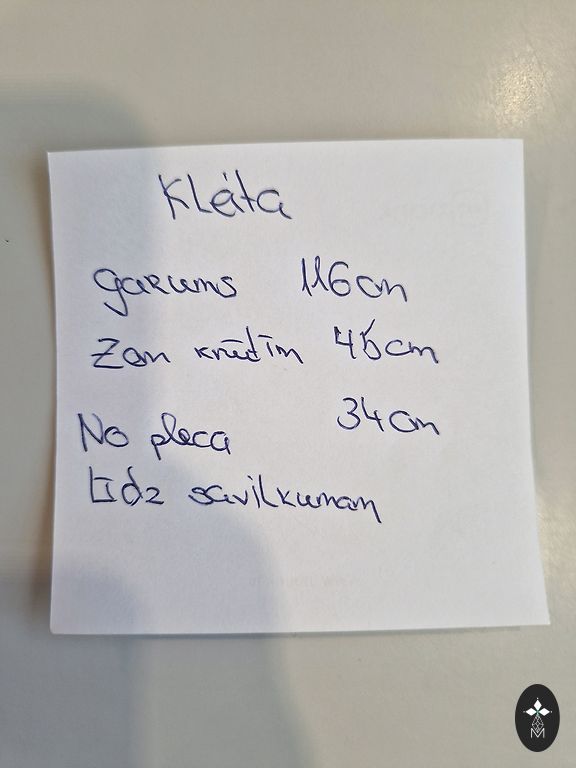 Klāta
garums 116cm
Zem krūtīm 45cm
No pleca 34cm
Līdz savilkumam
M